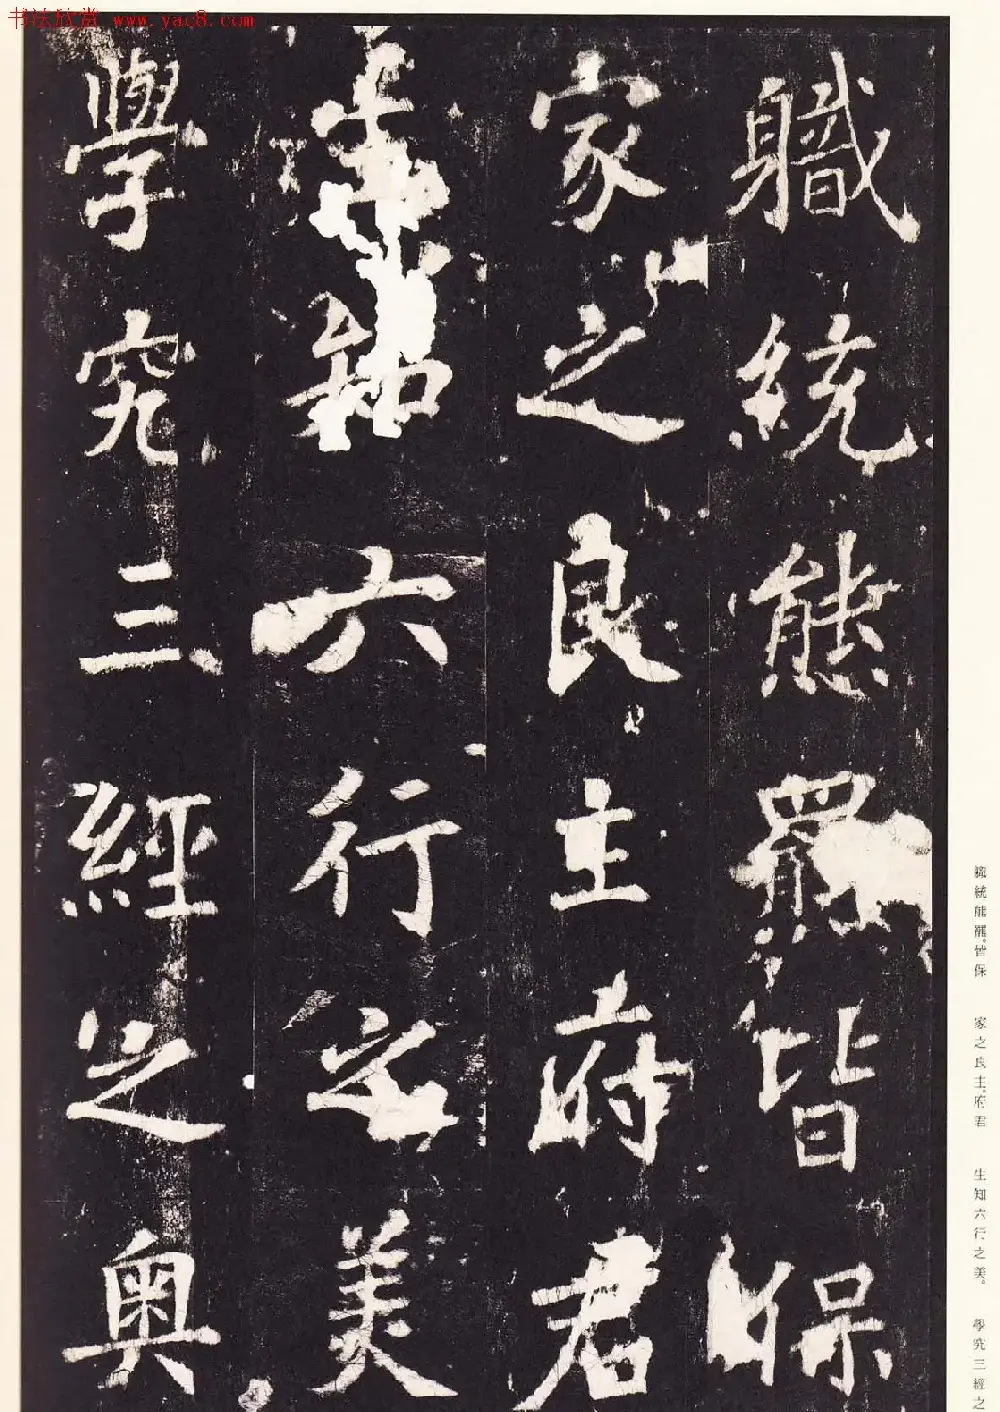 书法欣赏 www.yac8.com
職統熊羆皆保
家之良主府君
生知六行之美
學究三經之奥
職統熊羆。皆保　家之良主。府君　生知六行之美。　學究三經之